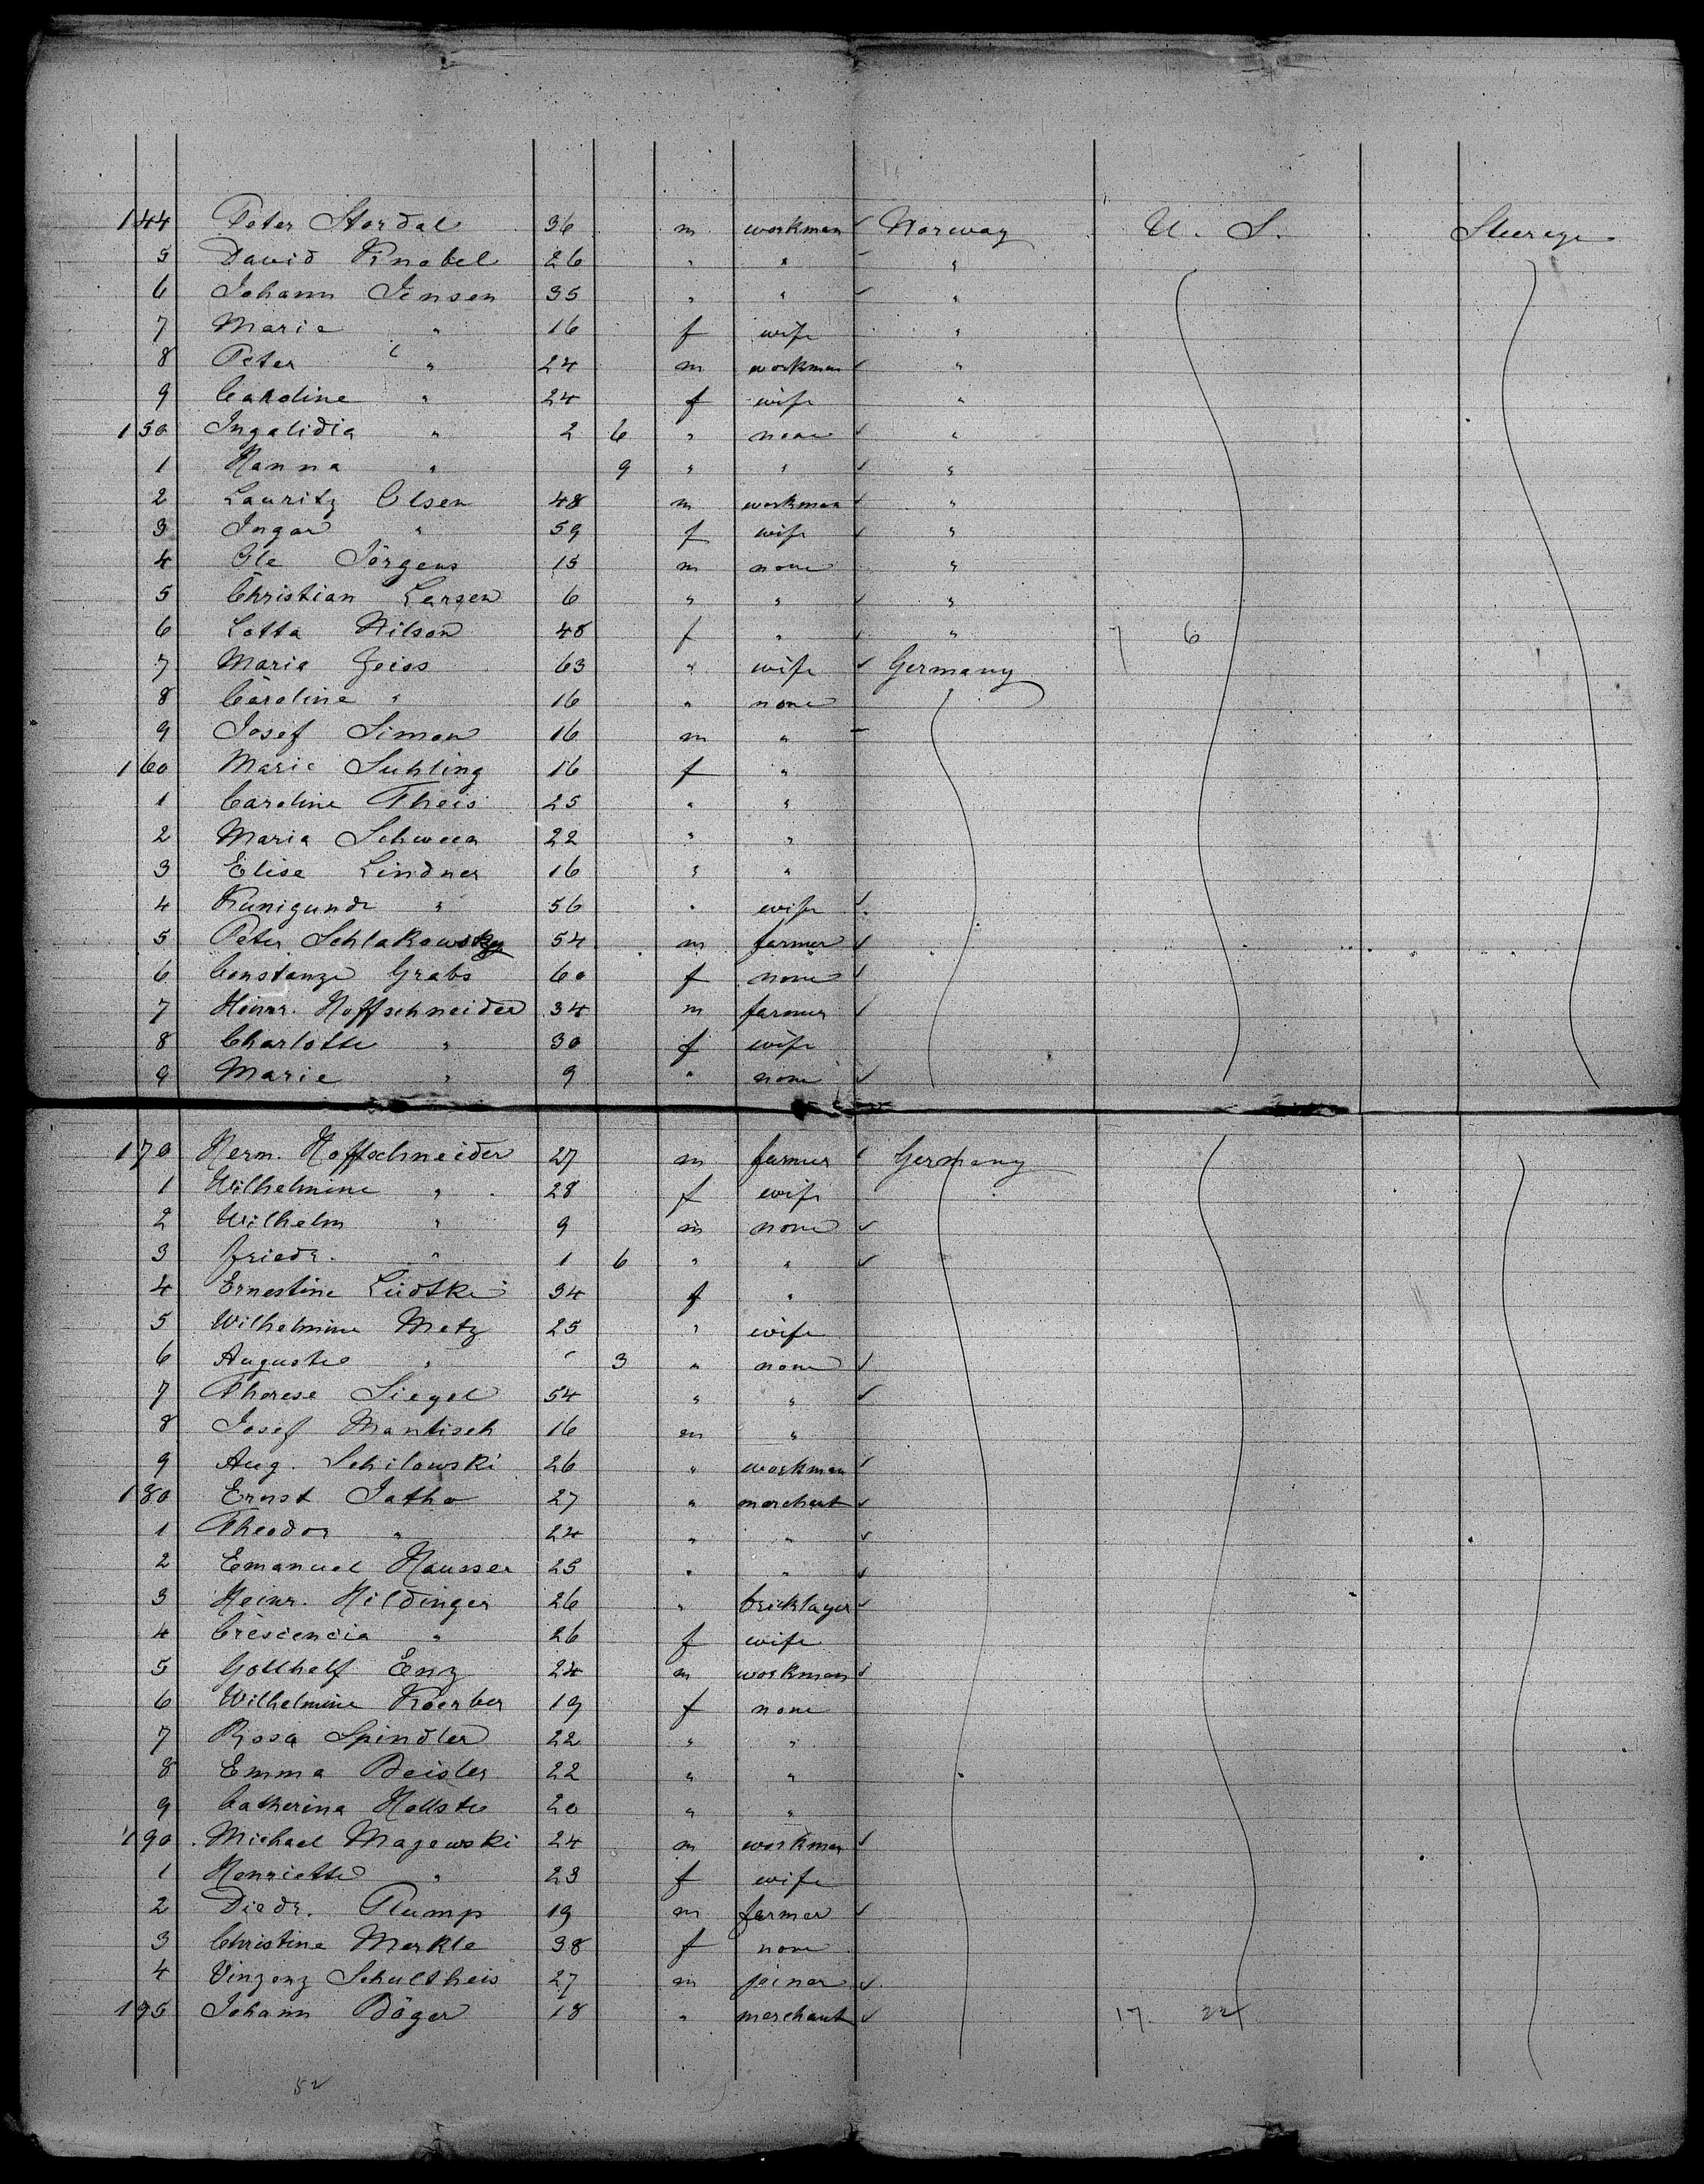 144 Peter Stordal 36 m workman ✓ Norway U. S. Steerage
5 David Knabel 26 " " – "
6 Johann Jensen 35 " " ✓ "
7 Marie " 16 f wife "
8 Peter " 24 m workman ✓ "
9 Caroline " 24 f wife "
150 Ingalidia " 2 6 " none ✓ "
1 Hanna " 9 " " ✓ "
2 Lauritz Olsen 48 m workman ✓ "
3 Ingar " 59 f wife ✓ "
4 Ole Jörgens 15 m none "
5 Christian Larsen 6 " " ✓ "
6 Lotta Nilson 48 f " ✓ " 7 6
7 Maria Geiss 63 " wife ✓ Germany
8 Caroline " 16 " none
9 Josef Simon 16 m " –
160 Marie Suhling 16 f "
1 Caroline Theis 25 " "
2 Maria 22 " "
3 Elise Lindner 16 " "
4 Kunigunde " 56 " wife ✓
5 Peter Schlakowsky 54 m farmer ✓
6 Constanze Grabs 60 f none ✓
7 Heinr. Hoffschneider 34 m farmer ✓
8 Charlotte " 30 f wife
9 Marie " 9 " none ✓
170 Herm. Hoffschneider 27 m farmer ✓ Germany
1 Wilhelmine " 28 f wife
2 Wilhelm " 9 m none ✓
3 Friedr. " 1 6 " " ✓
4 Ernestine Lüdtke 34 f "
5 Wilhelmine Metz 25 " wife
6 Auguste " 3 " none ✓
7 Therese Siegel 54 " " ✓
8 Josef Mantisch 16 m "
9 Aug. Schilowski 26 " workman ✓
180 Ernst Jatho 27 " merchant ✓
1 Theodor " 24 " " ✓
2 Emanuel Hausser 25 " " ✓
3 Heinr. Hildinger 26 " bricklayer ✓
4 Crescencia " 26 f wife
5 Gotthelf Enz 24 m workman ✓
6 Wilhelmine Koerber 19 f none
7 Rosa Spindler 22 " "
8 Emma Beisler 22 " "
9 Catherina 20 " "
190 Michael Majewski 24 m workman ✓
1 Henriette " 23 f wife
2 Diedr. Plump 19 m farmer ✓
3 Christine Merkle 38 f none
4 Vinzenz Schultheis 27 m joiner ✓
195 Johann Böger 18 " merchant ✓ 17 22
52